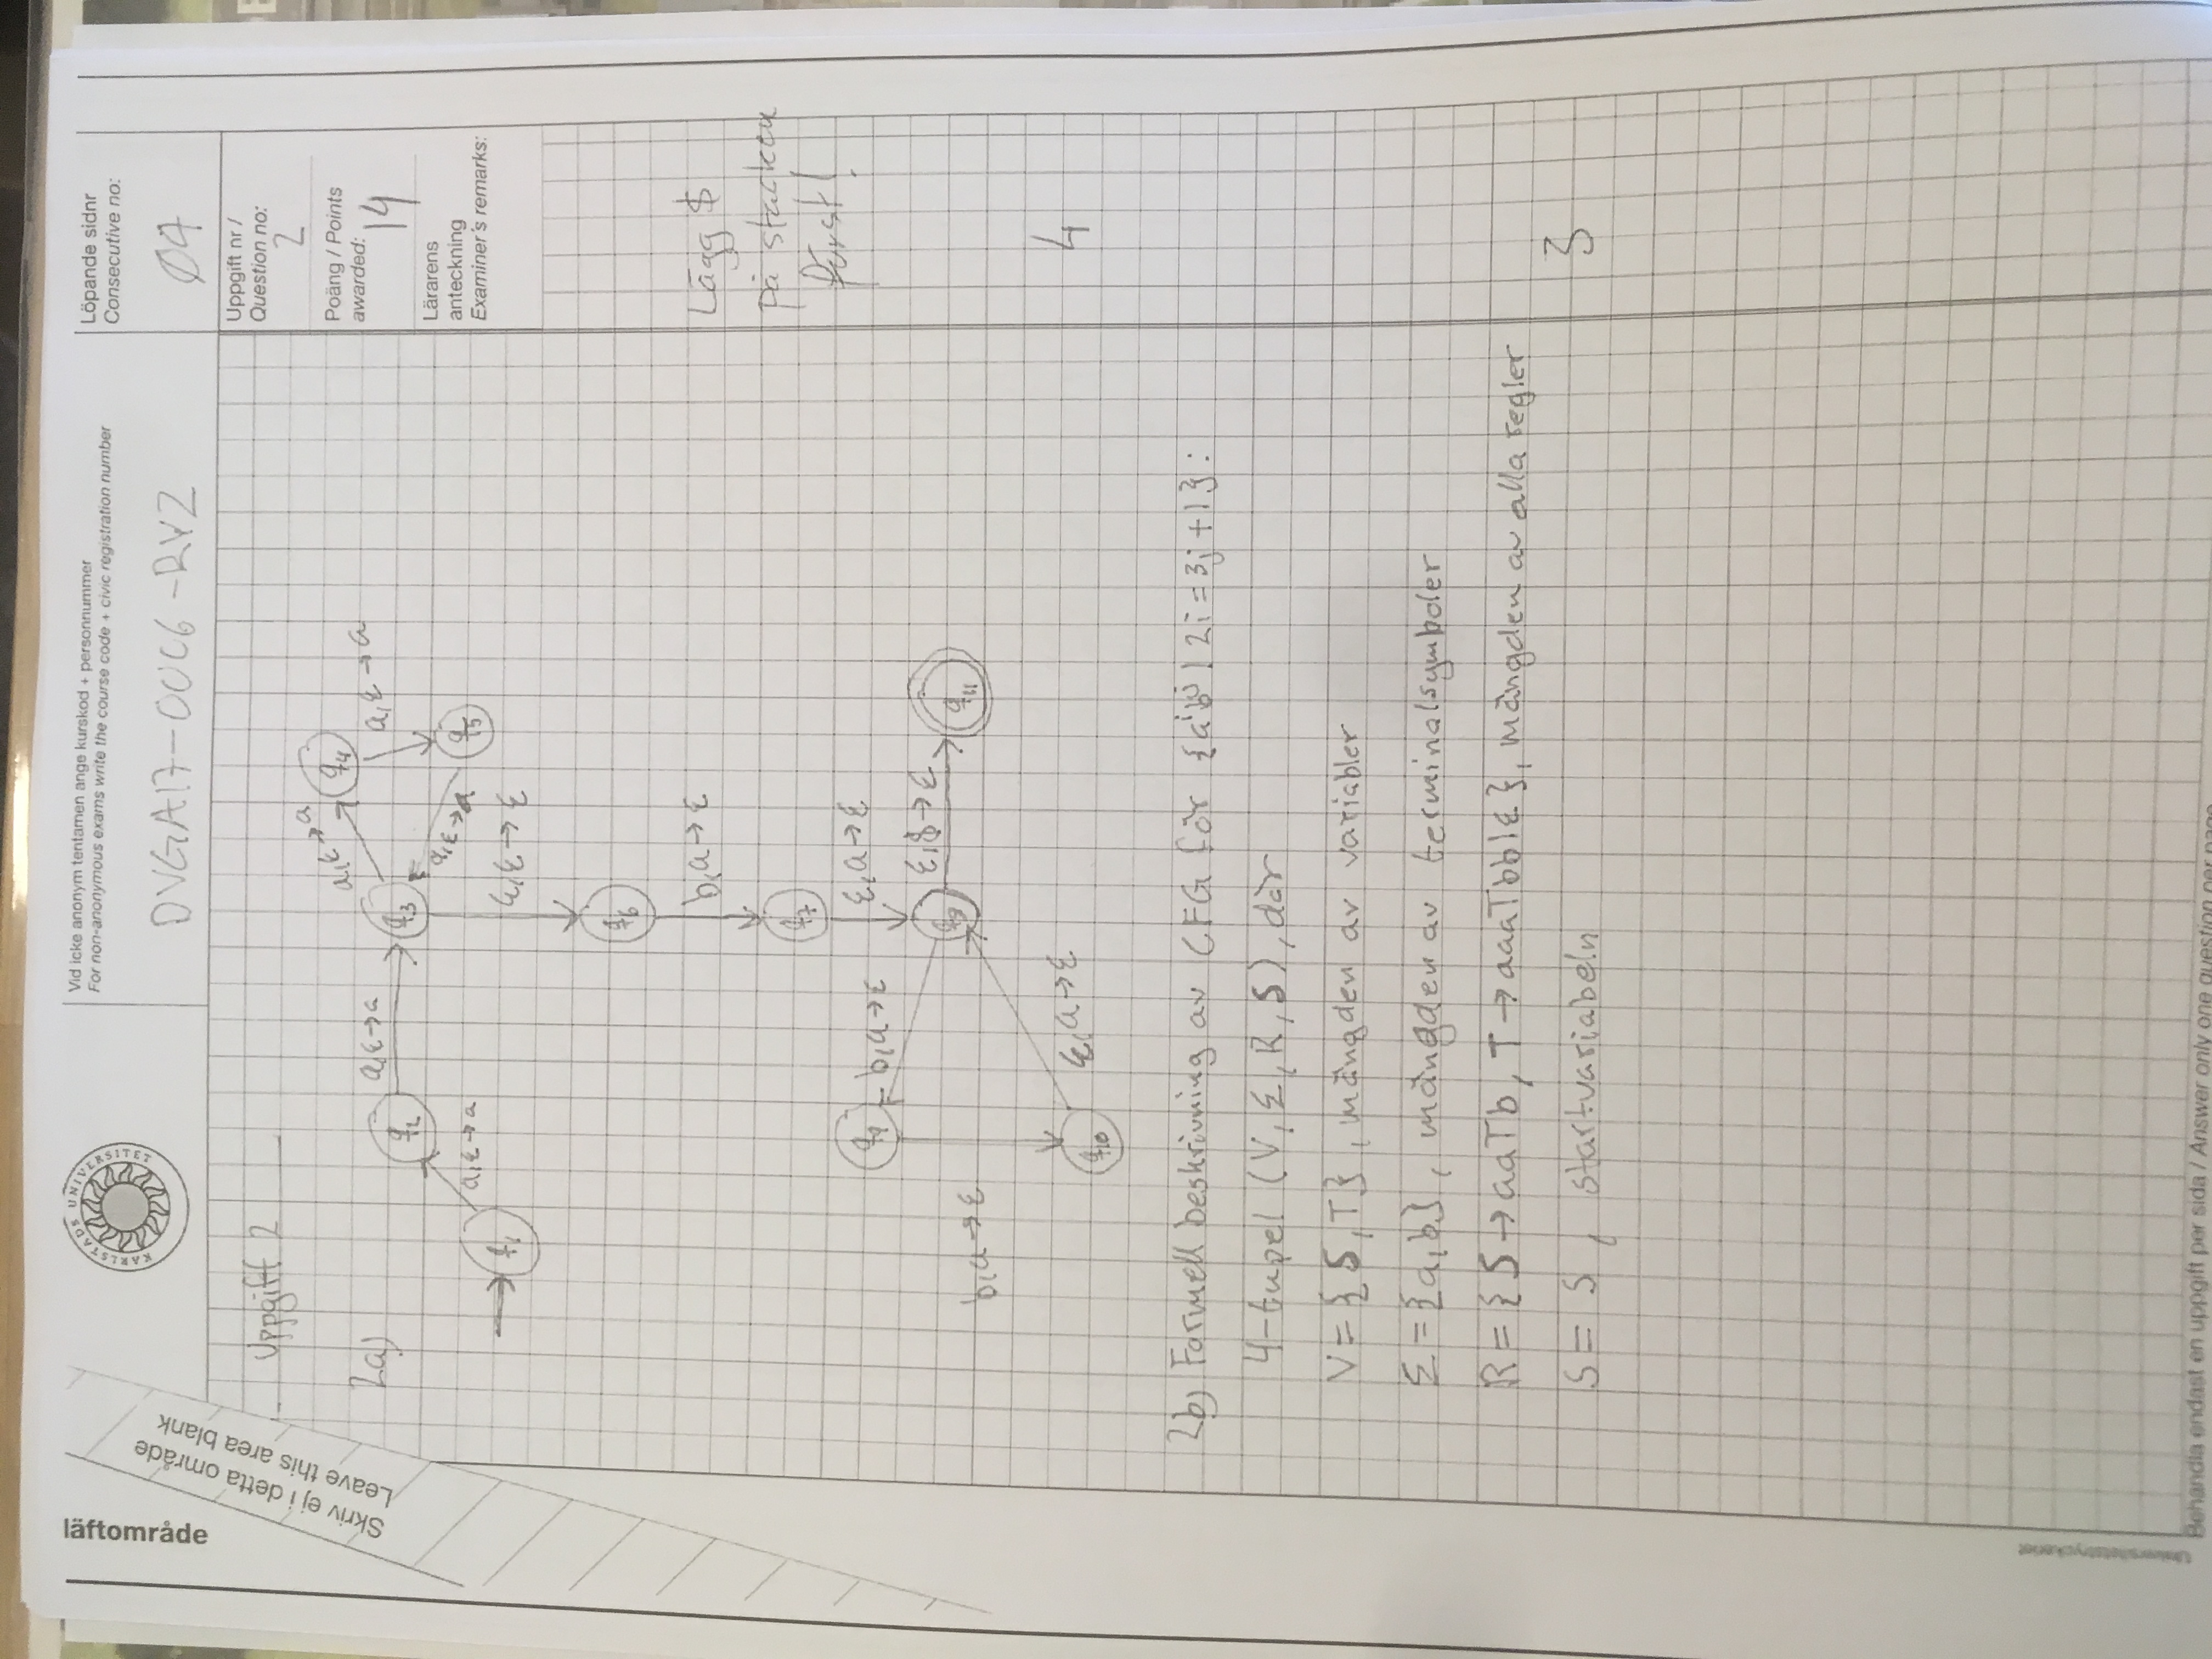 läftområde
Skriv ej i detta område
Leave this area blank
KARLSTADS UNIVERSITET
Vid icke anonym tentamen ange kurskod + personnummer
For non-anonymous exams write the course code + civic registration number
DVGA17-0006-RYZ
Löpande sidnr
Consecutive no:
04
Uppgift nr /
Question no:
2
Poäng / Points
awarded:
14
Lärarens
anteckning
Examiner's remarks:
Uppgift 2
2a)
q1
a,ε→a
q2
a,ε→a
q3
a,ε→a
q4
a,ε→a
q5
a,ε→a
ε,ε→ε
q6
b,a→ε
q7
ε,a→ε
q8
b,a→ε
q9
b,a→ε
q10
ε,a→ε
ε,$→ε
q11
Lägg $
på stacken
först!
4
2b) Formell beskrivning av CFG för {a^i b^j | 2i = 3j + 1}:
4-tupel (V, Σ, R, S), där
V = {S, T}, mängden av variabler
Σ = {a, b}, mängden av terminalsymboler
R = {S → aaTb, T → aaaTbb|ε}, mängden av alla regler
S = S, startvariabeln
3
Universitetstryckeriet
Behandla endast en uppgift per sida / Answer only one question per page